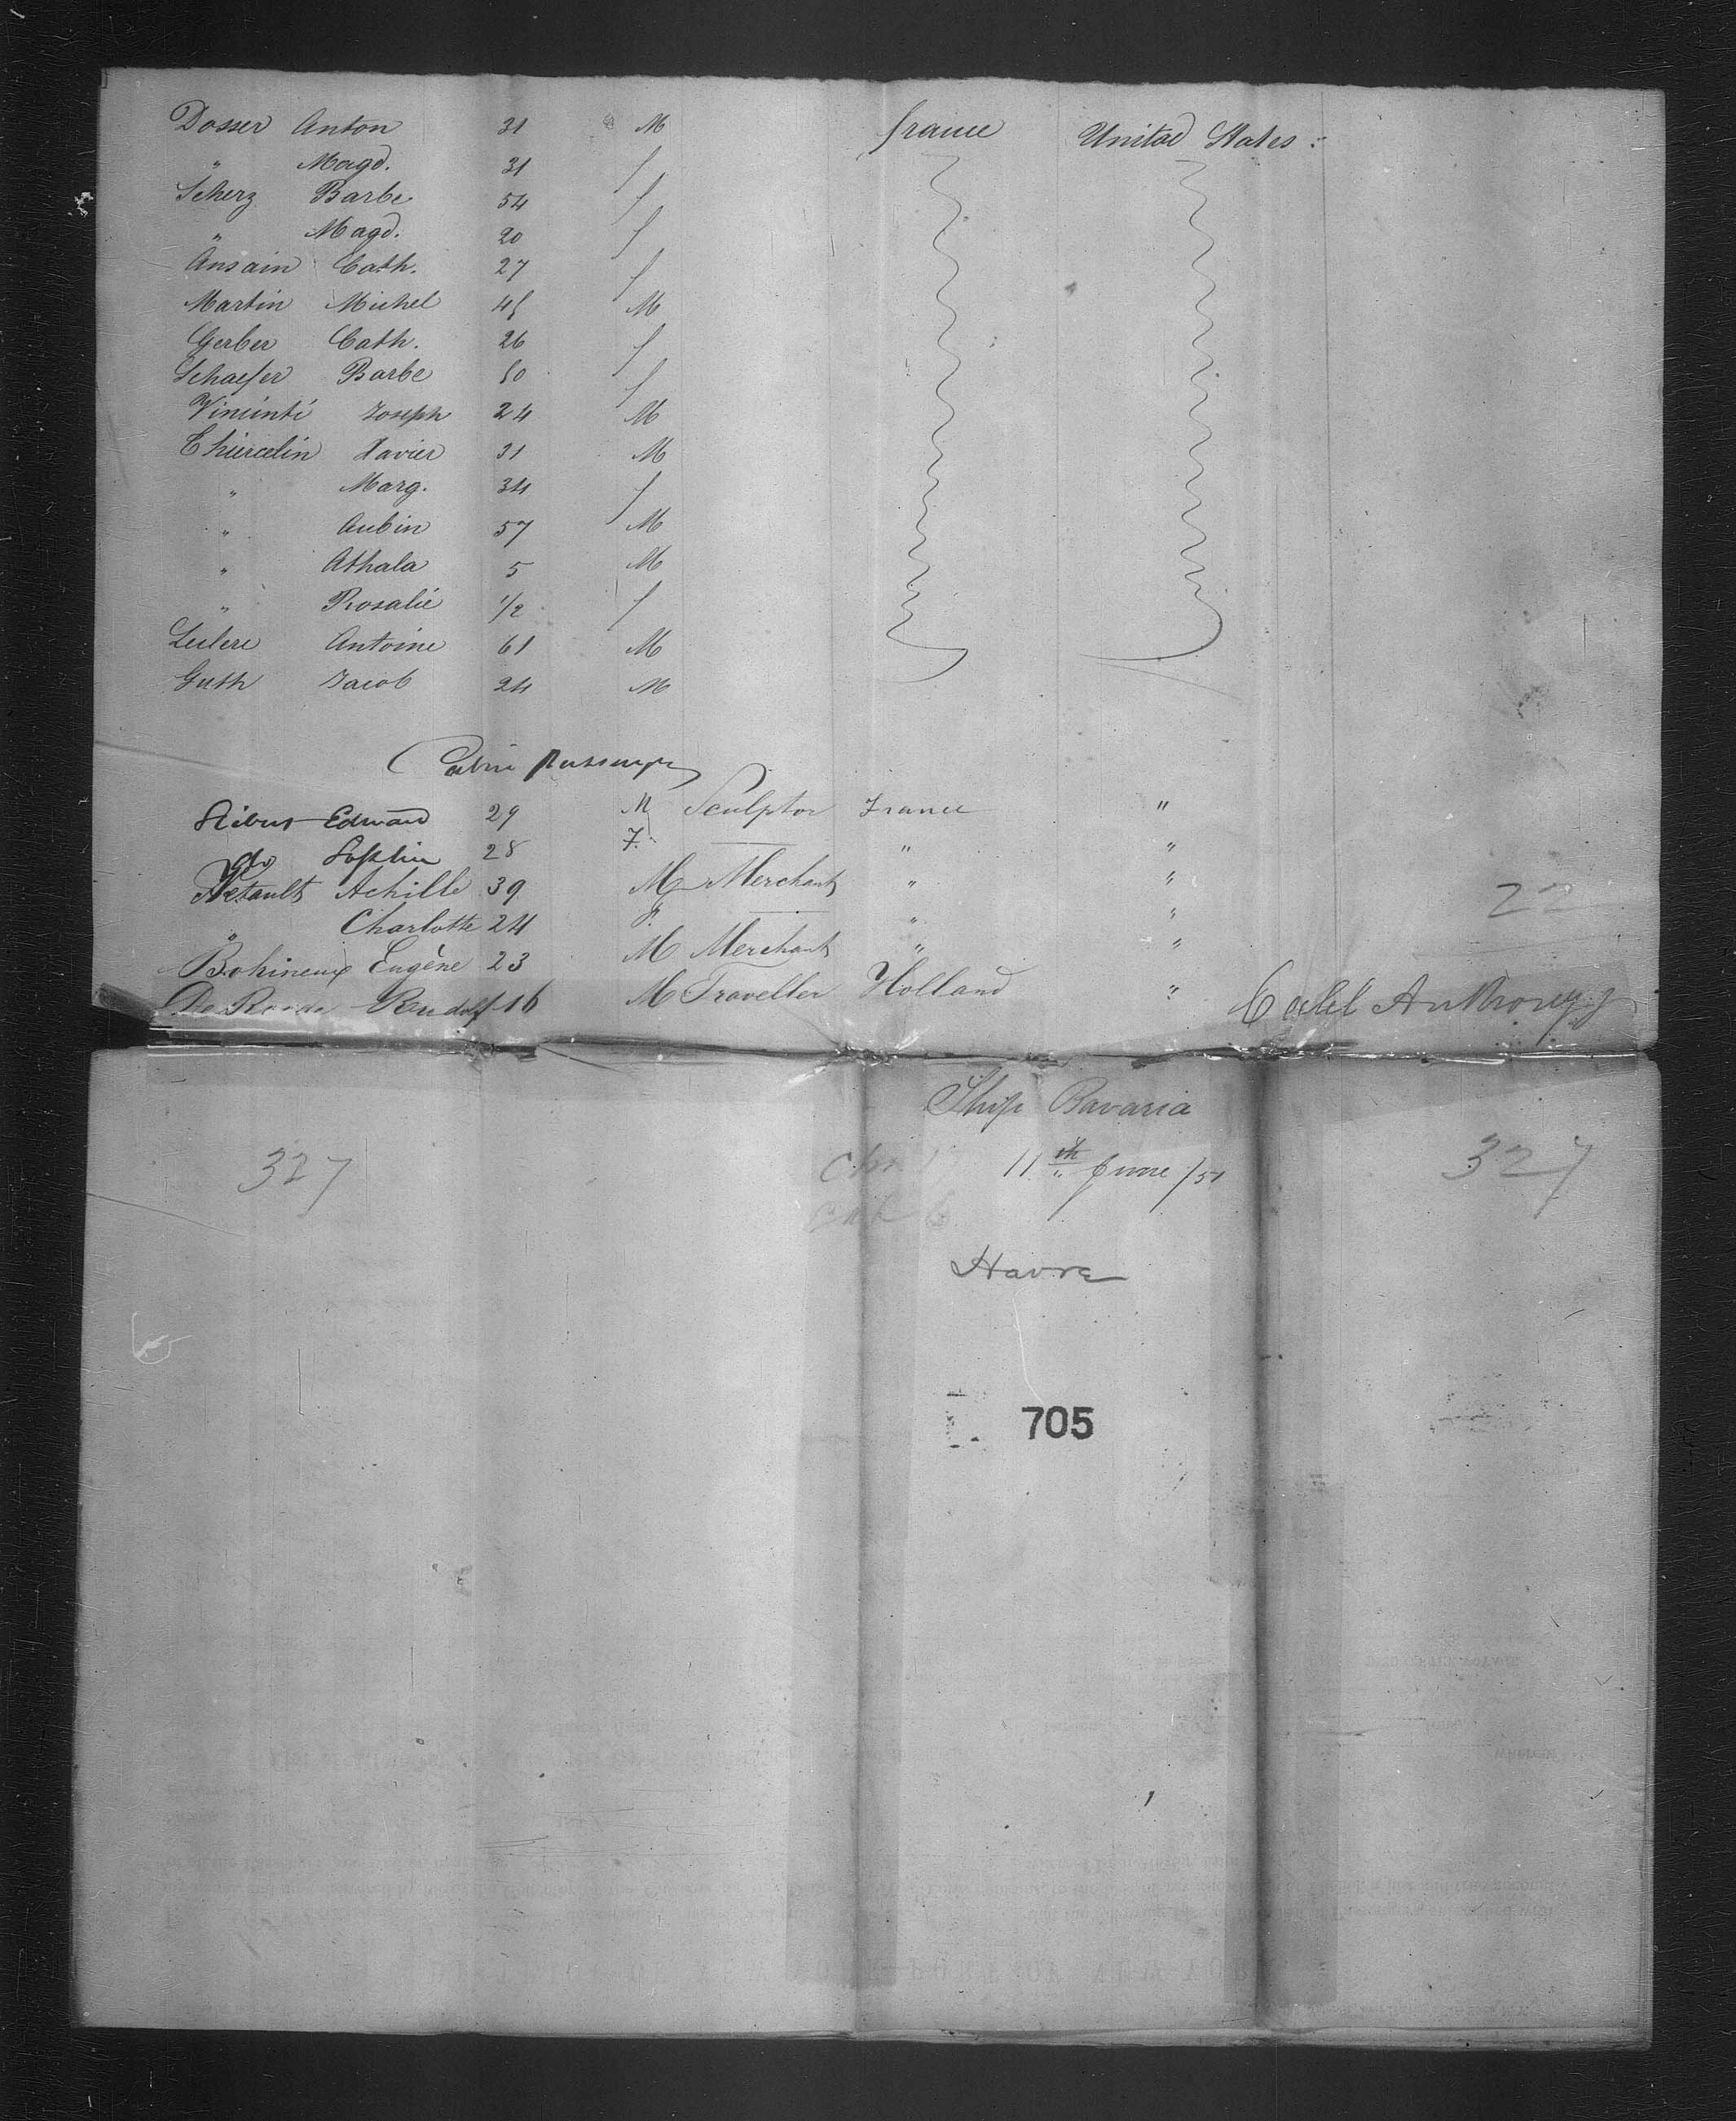 Dosser Anton 31 M france United States :
" Magd. 31 f
Scherz Barbe 54 f
" Magd. 20 f
Ansain Cath. 27 f
Martin Michel 45 M
Gerber Cath. 26 f
Schaefer Barbe 50 f
Vincinti Joseph 24 M
Thiercelin Xavier 31 M
" Marg. 34 f
" Aubin 57 M
" Athala 5 M
" Rosalie 1/2 f
Leclere Antoine 61 M
Guth Jacob 24 M
Cabin passengers
Edward 29 M Sculptor France "
do Sophia 28 F. — " "
Achille 39 M Merchant " "
" Charlotte 24 F. — " "
Eugène 23 M Merchant " "
De Ronde Rudolf 16 M Traveller Holland "
22
Calel Anthony
Ship Bavaria
327 11th June /51 327
Havre
705